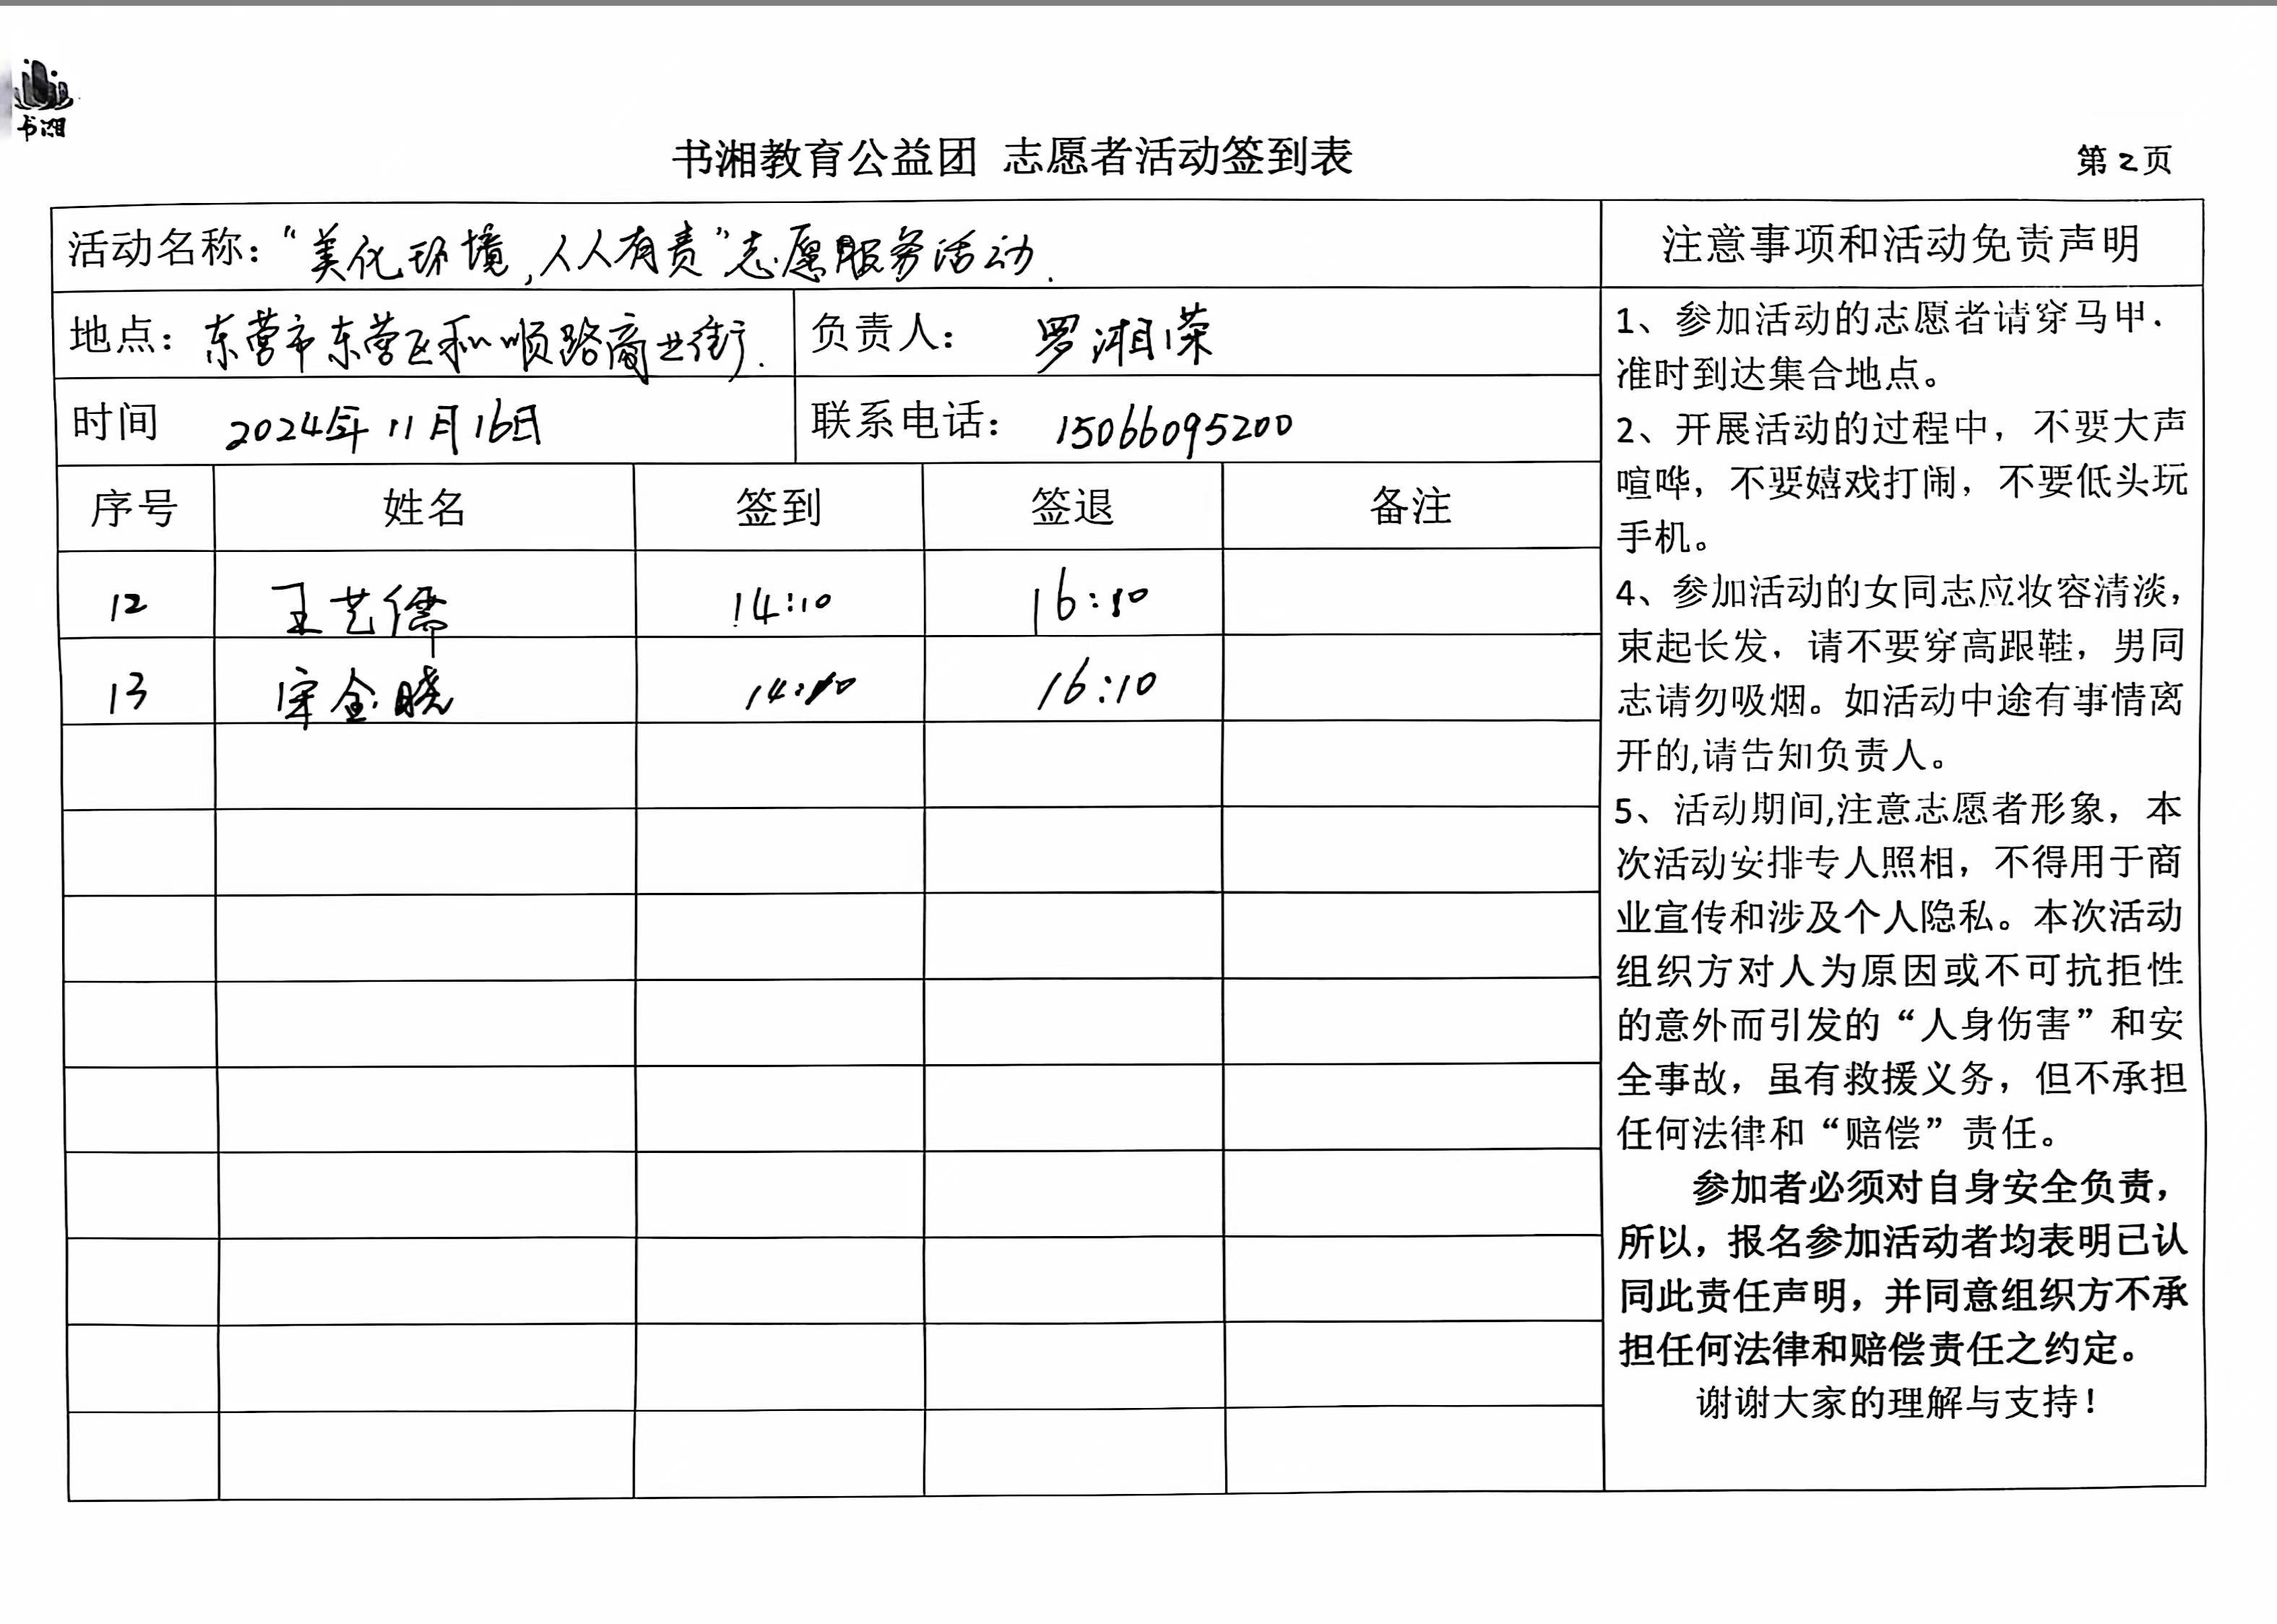 书湘
书湘教育公益团 志愿者活动签到表
第2页
活动名称：“美化环境，人人有责”志愿服务活动.
注意事项和活动免责声明
地点：东营市东营区和顺路商业街.
负责人：罗湘荣
时间 2024年11月16日
联系电话：15066095200
序号 姓名 签到 签退 备注
12 王艺儒 14:10 16:10
13 宋金晓 14:10 16:10
1、参加活动的志愿者请穿马甲.
准时到达集合地点。
2、开展活动的过程中，不要大声
喧哗，不要嬉戏打闹，不要低头玩
手机。
4、参加活动的女同志应妆容清淡，
束起长发，请不要穿高跟鞋，男同
志请勿吸烟。如活动中途有事情离
开的,请告知负责人。
5、活动期间,注意志愿者形象，本
次活动安排专人照相，不得用于商
业宣传和涉及个人隐私。本次活动
组织方对人为原因或不可抗拒性
的意外而引发的“人身伤害”和安
全事故，虽有救援义务，但不承担
任何法律和“赔偿”责任。
参加者必须对自身安全负责，
所以，报名参加活动者均表明已认
同此责任声明，并同意组织方不承
担任何法律和赔偿责任之约定。
谢谢大家的理解与支持！